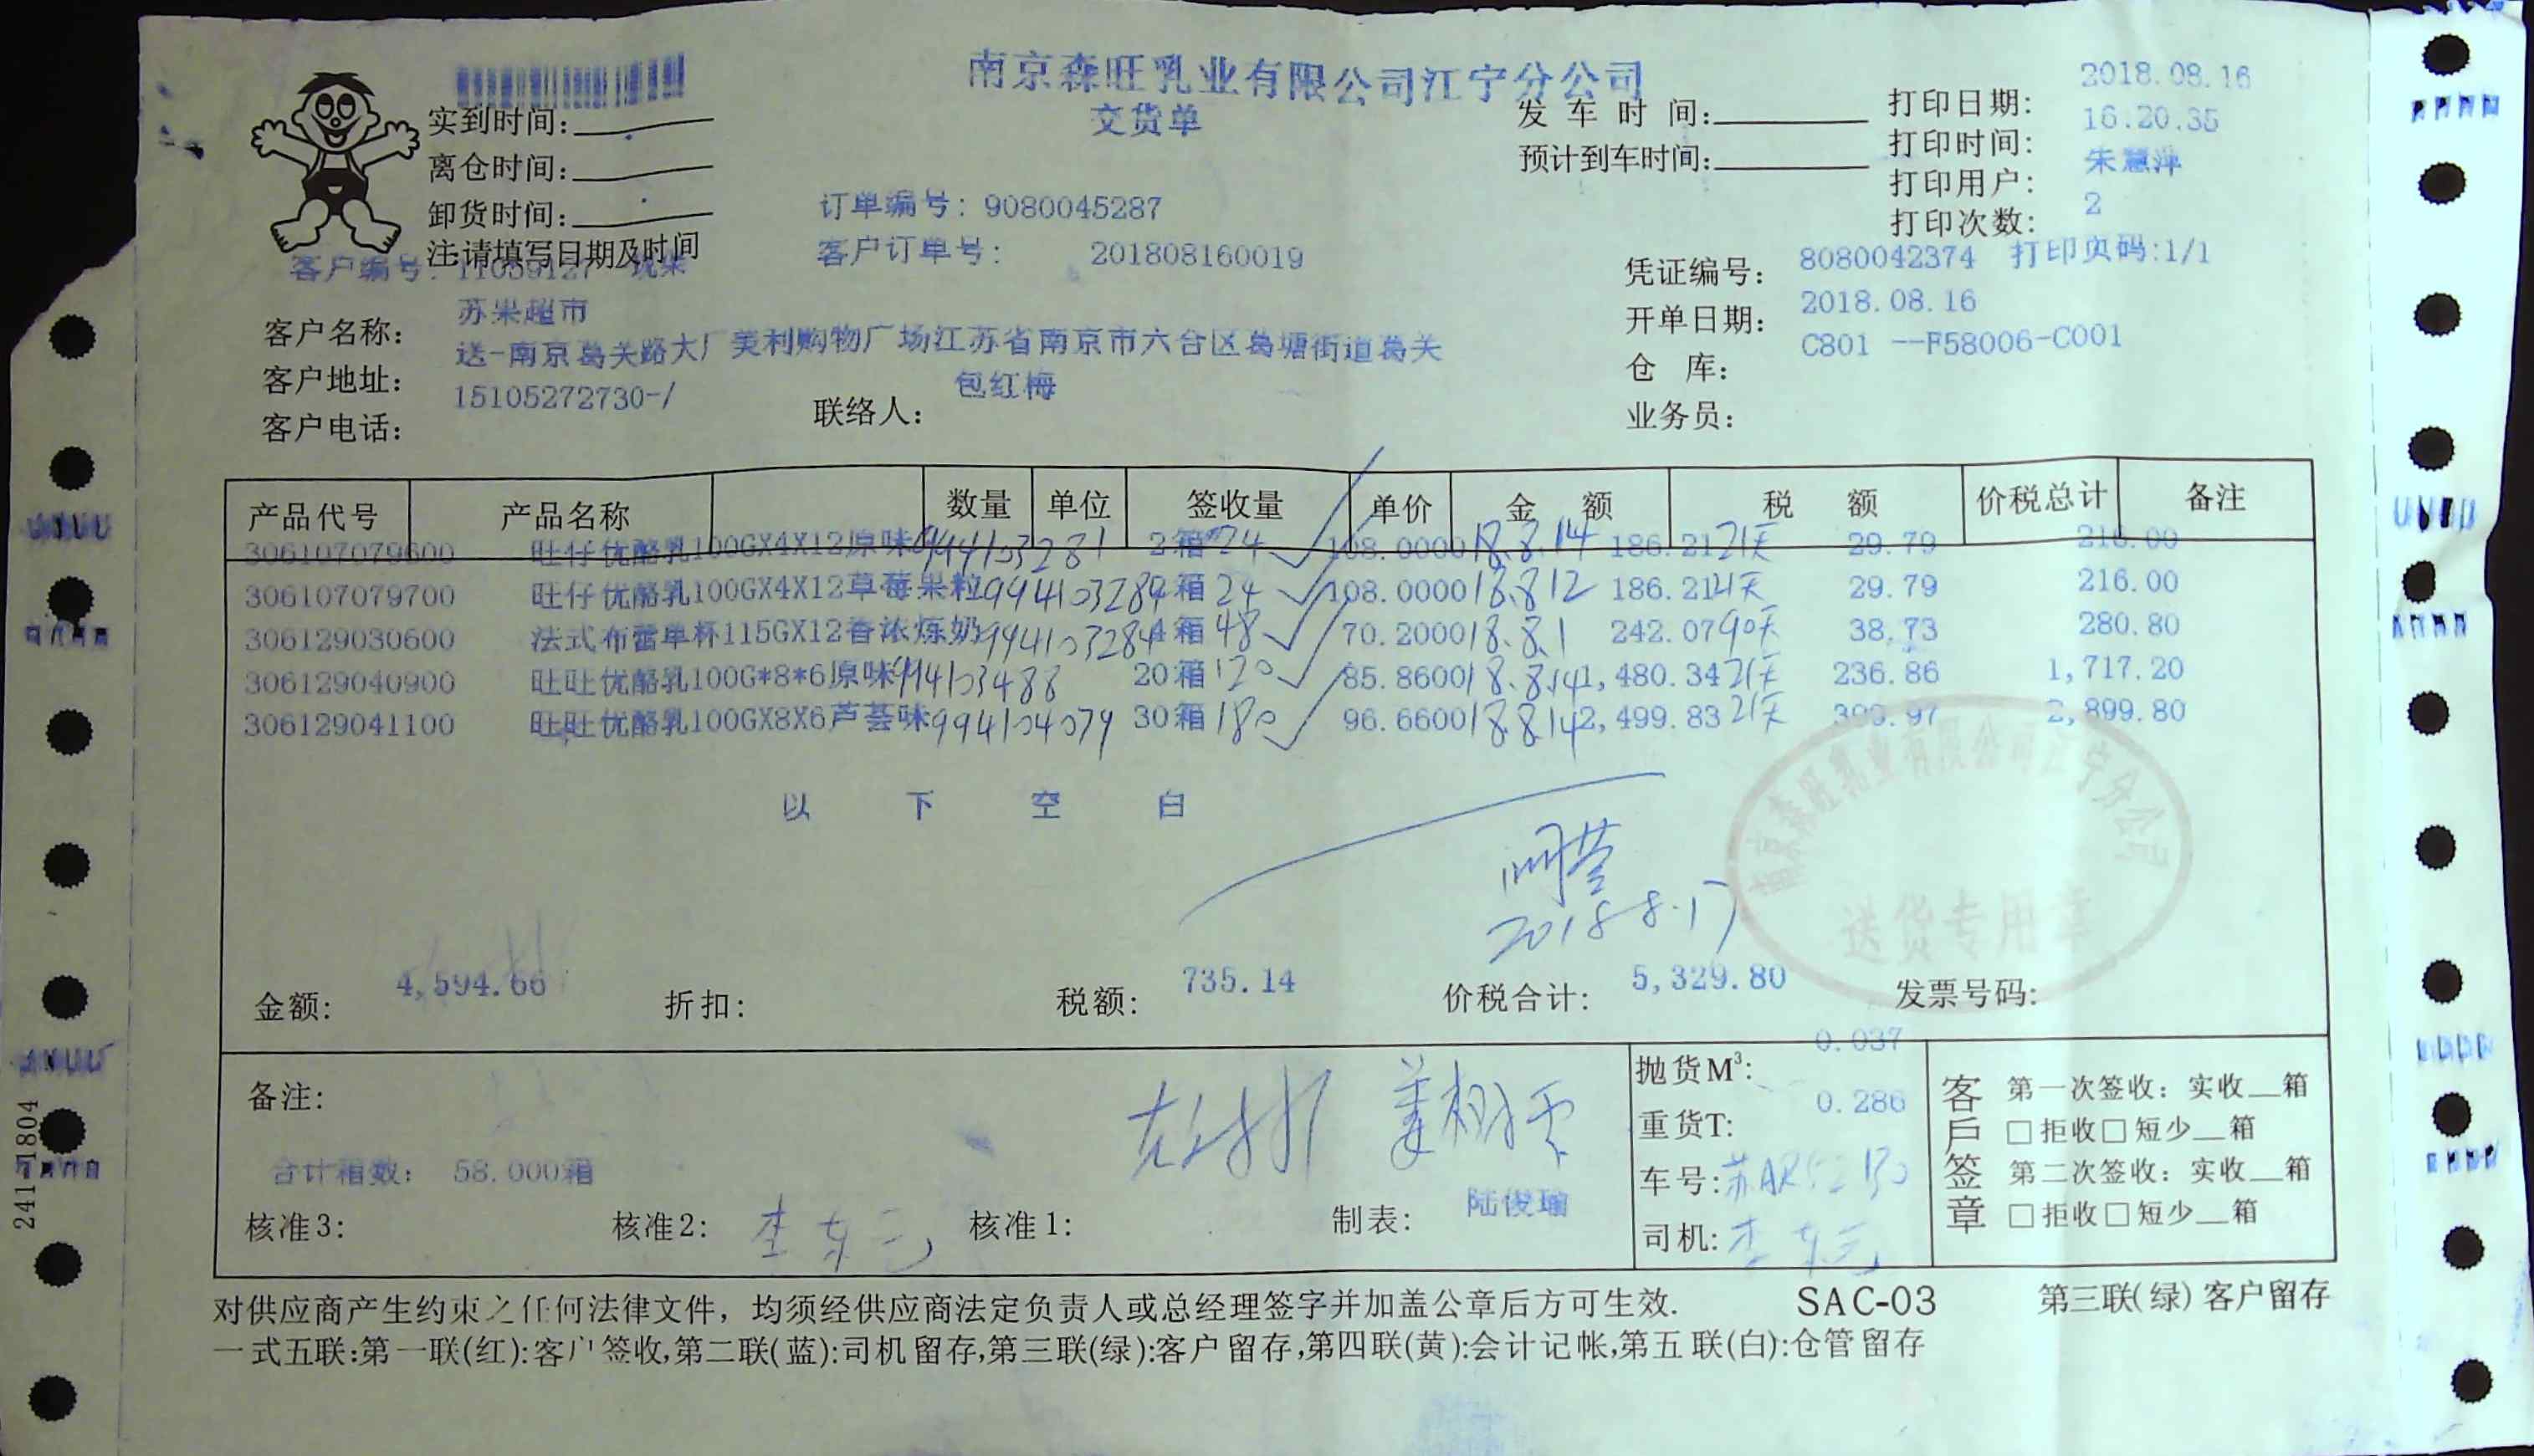 南京森旺乳业有限公司江宁分公司
交货单
实到时间:
离仓时间:
卸货时间:
注:请填写日期及时间
发车时间:
预计到车时间:
打印日期: 2018.08.16
打印时间: 16:20:35
打印用户: 朱慧萍
打印次数: 2
订单编号: 9080045287
客户订单号: 201808160019
客户编号: 11059127
凭证编号: 8080042374 打印页码:1/1
客户名称: 苏果超市
开单日期: 2018.08.16
客户地址: 送-南京葛关路大厂美利购物广场江苏省南京市六合区葛塘街道葛关
仓库: C801 --F58006-C001
客户电话: 15105272730-/
联络人: 包红梅
业务员:
产品代号 产品名称 数量 单位 签收量 单价 金额 税额 价税总计 备注
306107079600 旺仔优酪乳100GX4X12原味 994103281 2箱 24 108.0000 18.8.14 186.21 21天 29.79 216.00
306107079700 旺仔优酪乳100GX4X12草莓果粒 994103284 箱 24 108.0000 18.8.12 186.21 21天 29.79 216.00
306129030600 法式布蕾单杯115GX12香浓炼奶 994103284 4箱 48 70.2000 18.8.1 242.07 90天 38.73 280.80
306129040900 旺旺优酪乳100G*8*6原味 994103488 20箱 120 85.8600 18.8.14 1,480.34 21天 236.86 1,717.20
306129041100 旺旺优酪乳100GX8X6芦荟味 994104079 30箱 180 96.6600 18.8.14 2,499.83 21天 399.97 2,899.80
以下空白
2018 8.17
南京森旺乳业有限公司江宁分公司
送货专用章
金额: 4,594.66 折扣: 税额: 735.14 价税合计: 5,329.80 发票号码:
备注:
合计箱数: 58.000箱
抛货M³: 0.037
重货T: 0.286
车号: 苏AR
司机: 李东元
核准3: 核准2: 李东元 核准1: 制表: 陆俊瑜
客戶签章
第一次签收: 实收__箱
□拒收□短少__箱
第二次签收: 实收__箱
□拒收□短少__箱
对供应商产生约束之任何法律文件，均须经供应商法定负责人或总经理签字并加盖公章后方可生效. SAC-03 第三联(绿)客户留存
一式五联:第一联(红):客户签收,第二联(蓝):司机留存,第三联(绿):客户留存,第四联(黄):会计记帐,第五联(白):仓管留存